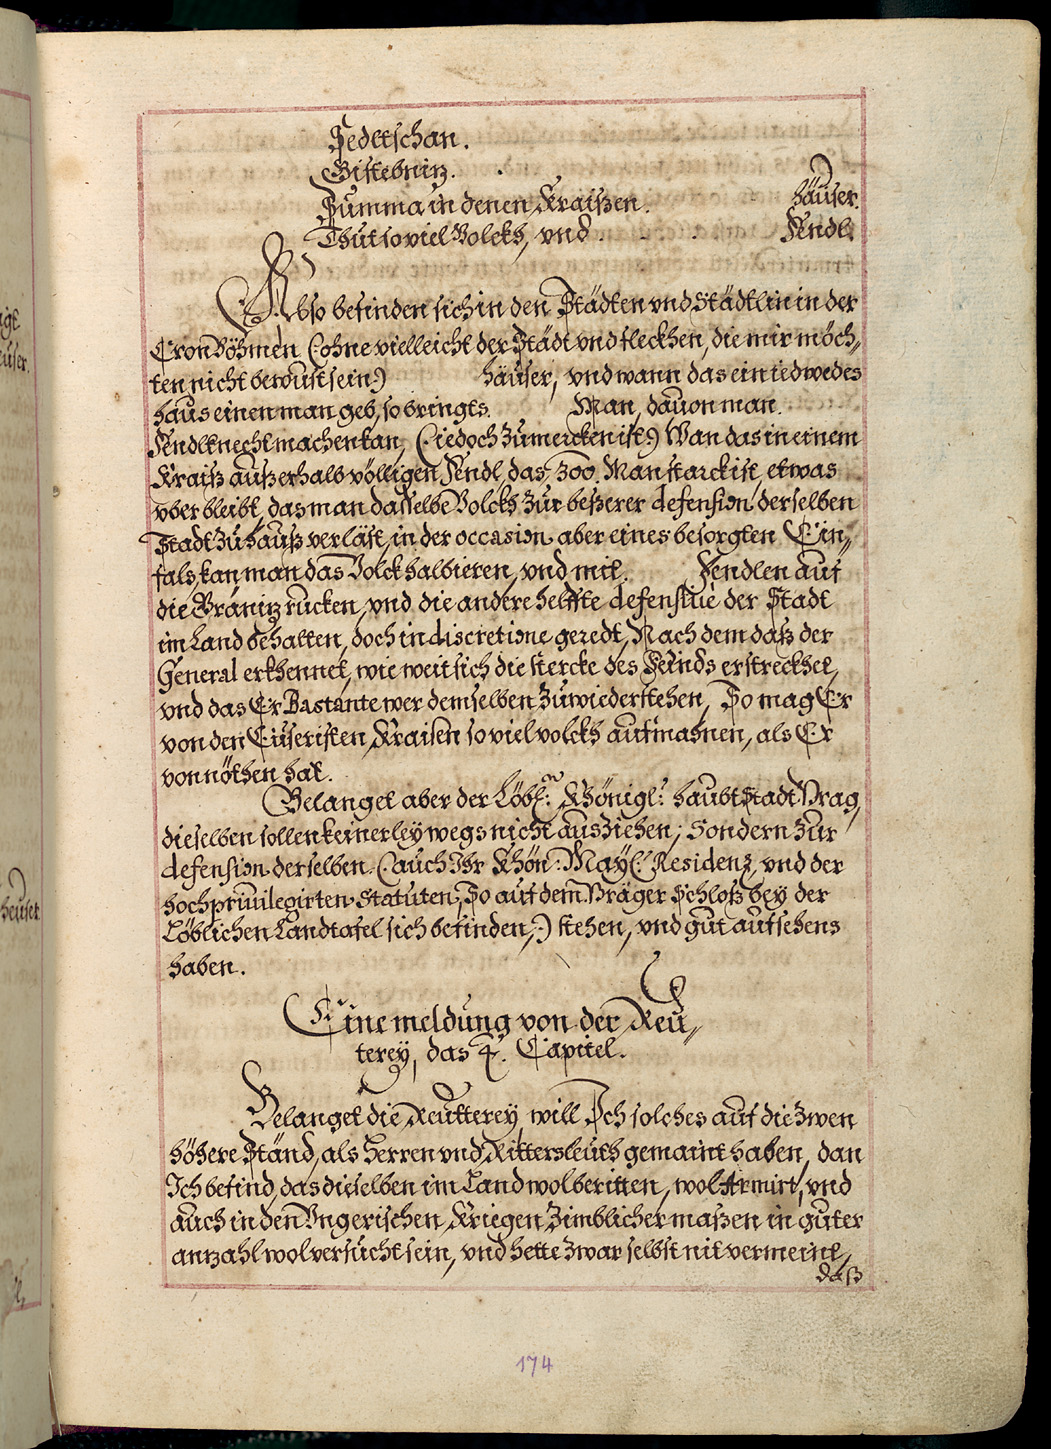 Sedetschan.
Gistebnitz.
Summa in denen Kraißen. häuser.
Thut so viel Volckh, vnd . . . . Fendl.
Also befinden sich in den Städten vnd Städtlin in der
Cron Böhmen (ohne vielleicht der Städt vnd fleckhen, die mir möch„
ten nicht bewust sein) häuser, vnd wann das ein iedwedes
haus einen man geb, so bringts. Man, dauon man
Fendl knecht machen kan, (iedoch zu mercken ist) Wan das in einem
Kraiß außerhalb völligen Fendl, das 300. Man starck ist, etwas
vber bleibt, das man dasselbe Volckh zur beßerer defension derselben
Stadt zu hauß verläst, in der occasion aber eines besorgten Ein„
fals, kan man das Volck halbieren, vnd mit. Fendlen auf
die Gränitz rucken, vnd die andere helffte defensiue der Stadt
im Land behalten, doch in discretione geredt, Nach dem daß der
General erkhennet, wie weit sich die stercke des Feinds erstreckhet,
vnd das Er Bastante wer demselben zuwiederstehen, So mag Er
von den Euseristen Kraisen so viel volckh aufmahnen, als Er
vonnöthen hat.
Belanget aber der Löbl:n Khönigl: haubt Stadt Prag,
dieselben sollen keinerley wegs nicht ausziehen, Sondern zur
defension derselben (auch Ihr Khön: Mayl: Residenz, vnd der
hochpriuilegirten Statuten, So auf dem Präger Schloß bey der
Löblichen Landtafel sich befinden,) stehen, vnd gut aufsehens
haben.
Eine meldung von der Reu„
terey, das 4. Capitel.
Belanget die Reutterey, will Ich solches auf die zwen
höhere Ständ, als Herren vnd Rittersleuth gemaint haben, dan
Ich befind, das dieselben im Land wol beritten, wol Armirt, vnd
auch in den Vngerischen Kriegen zimblicher maßen in guter
antzahl wol versucht sein, vnd hette zwar selbst nit vermeint,
daß
174